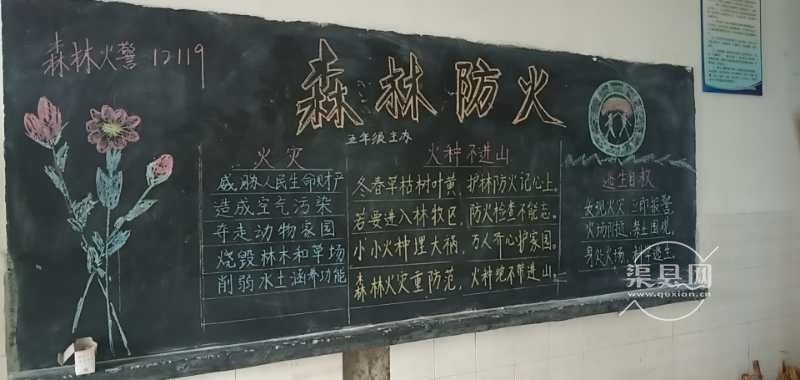 森林火警 12119
森林防火
五年级主办
火灾
威胁人民生命财产
造成空气污染
夺走动物家园
烧毁林木和草场
削弱水土涵养功能
火种不进山
冬春草枯树叶黄，护林防火记心上。
若要进入林牧区，防火检查不能忘。
小小火种埋大祸，万人齐心护家园。
森林火灾重防范，火种绝不带进山。
逃生自救
发现火灾 立即报警
火场附近，禁止围观，
身处火场，
渠县网
www.quxian.cn